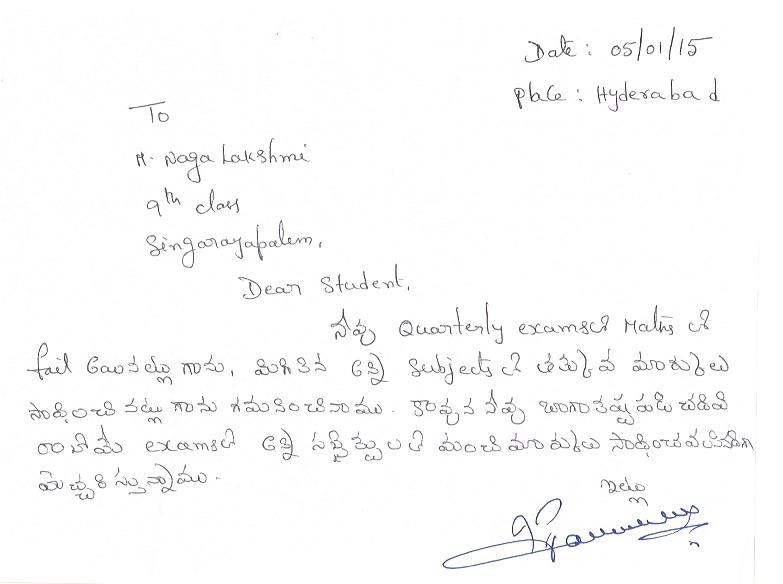 Date : 05/01/15
place : Hyderabad
To
M. Naga Lakshmi
9th class
Singarayapalem,
Dear Student,
నీవు Quarterly examsలో Maths లో
fail అయినట్లు గాను, మిగిలిన అన్ని subjects లో తక్కువ మార్కులు
సాధించినట్లు గాను గమనించినాము. కావున నీవు బాగా కష్టపడి చదివి
రాబోయే examsలో అన్ని సబ్జెక్టులలో మంచి మార్కులు సాధించవలసినదిగా
హెచ్చరిస్తున్నాము.
ఇట్లు